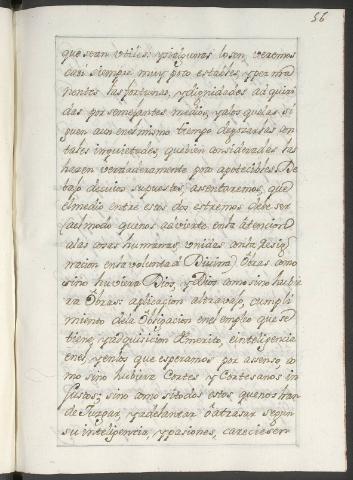 56
que sean utiles: y si algunas lo son, veremos
casi siempre muy poco estables, y perma
nentes las fortunas, y dignidades adquiri
das por semejantes medios, y a los que las si
guen aun en el mismo tiempo de gozarlas con
tales inquietudes, que bien consideradas las
hacen verdaderamente poco apetecibles. De
bajo de cuios supuestos, asentaremos, que
el medio entre estos dos estremos debe ser
aquel modo que nos advierte en la atencion
a las cosas humanas, unidas con la Resig
nacion en la voluntad Divina, Obrar como
sino hubiera Dios, y a Dios como sino hubie
ra Obras: aplicacion al trabajo, cumpli
miento de la Obligacion en el empleo que se
tiene, y adquisicion de merito, e inteligencia
en el, y en los que esperamos por ascenso, co
mo sino hubiera Cortes y Cortesanos in
justos; sino como si todos estos, que nos han
de Juzgar, y adelantar ó atrasar segun
su inteligencia, y pasiones, careciesen